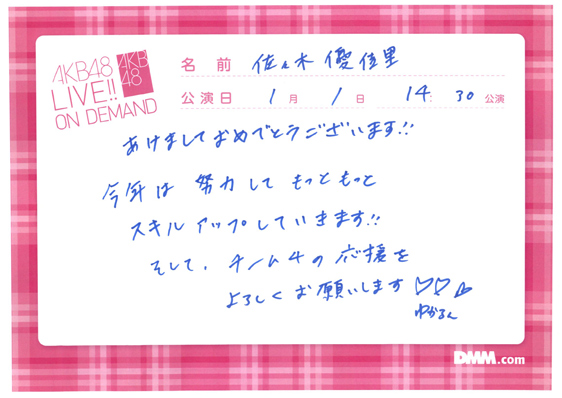 AKB48
LIVE!!
ON DEMAND
AKB
48
名 前 佐々木優佳里
公演日 1月 1日 14:30公演
あけましておめでとうございます!!
今年は 努力して もっともっと
スキルアップしていきます!!
そして、チーム4の応援を
よろしくお願いします♡♡
ゆかるん
DMM.com